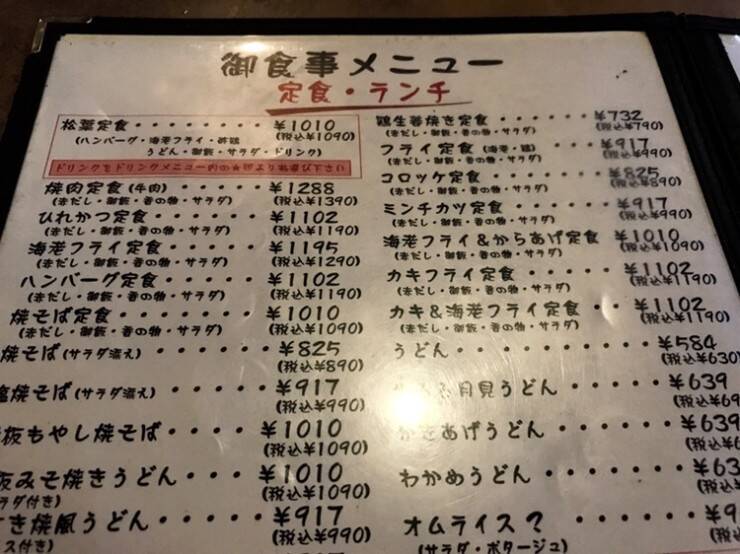 御食事メニュー
定食・ランチ
松葉定食・・・・・・・・¥1010
(ハンバーグ・海老フライ・
(税込¥1090)
うどん・御飯・サラダ・ドリンク)
ドリンクをドリンクメニュー内の より御選び下さい
焼肉定食(牛肉)・・・・・・¥1288
(赤だし・御飯・香の物・サラダ)
(税込¥1390)
ひれかつ定食・・・・・・¥1102
(赤だし・御飯・香の物・サラダ)
(税込¥1190)
海老フライ定食・・・・・¥1195
(赤だし・御飯・香の物・サラダ)
(税込¥1290)
ハンバーグ定食・・・・・¥1102
(赤だし・御飯・香の物・サラダ)
(税込¥1190)
焼そば定食・・・・・・・¥1010
(赤だし・御飯・香の物・サラダ)
(税込¥1090)
焼そば(サラダ添え)・・・・・¥825
(税込¥890)
焼そば(サラダ添え)・・・・・¥917
(税込¥990)
板もやし焼そば・・・・・¥1010
(税込¥1090)
板みそ焼きうどん・・・・¥1010
ラダ付き)
(税込¥1090)
き焼風うどん・・・・・¥917
ス付き)
(税込¥990)
鶏生姜焼き定食・・・・・・¥732
(赤だし・御飯・香の物・サラダ)
(税込¥790)
フライ定食(海老・ ・・・・¥917
(赤だし・御飯・香の物・サラダ)
(税込¥990)
コロッケ定食・・・・・・・¥825
(赤だし・御飯・香の物・サラダ)
(税込¥890)
ミンチカツ定食・・・・・・¥917
(赤だし・御飯・香の物・サラダ)
(税込¥990)
海老フライ&からあげ定食 ¥1010
(赤だし・御飯・香の物・サラダ)
(税込¥1090)
カキフライ定食・・・・・・¥1102
(赤だし・御飯・香の物・サラダ)
(税込¥1190)
カキ&海老フライ定食・・・¥1102
(赤だし・御飯・香の物・サラダ)
(税込¥1190)
うどん・・・・・・・・・・¥584
(税込¥630)
月見うどん・・・・・・¥639
(税込¥69
あげうどん・・・・・・・¥639
(税込¥6
わかめうどん・・・・・・・¥63
(税込¥6
オムライス?・・・・・・・¥9
(サラダ・ポタージュ)
(税込